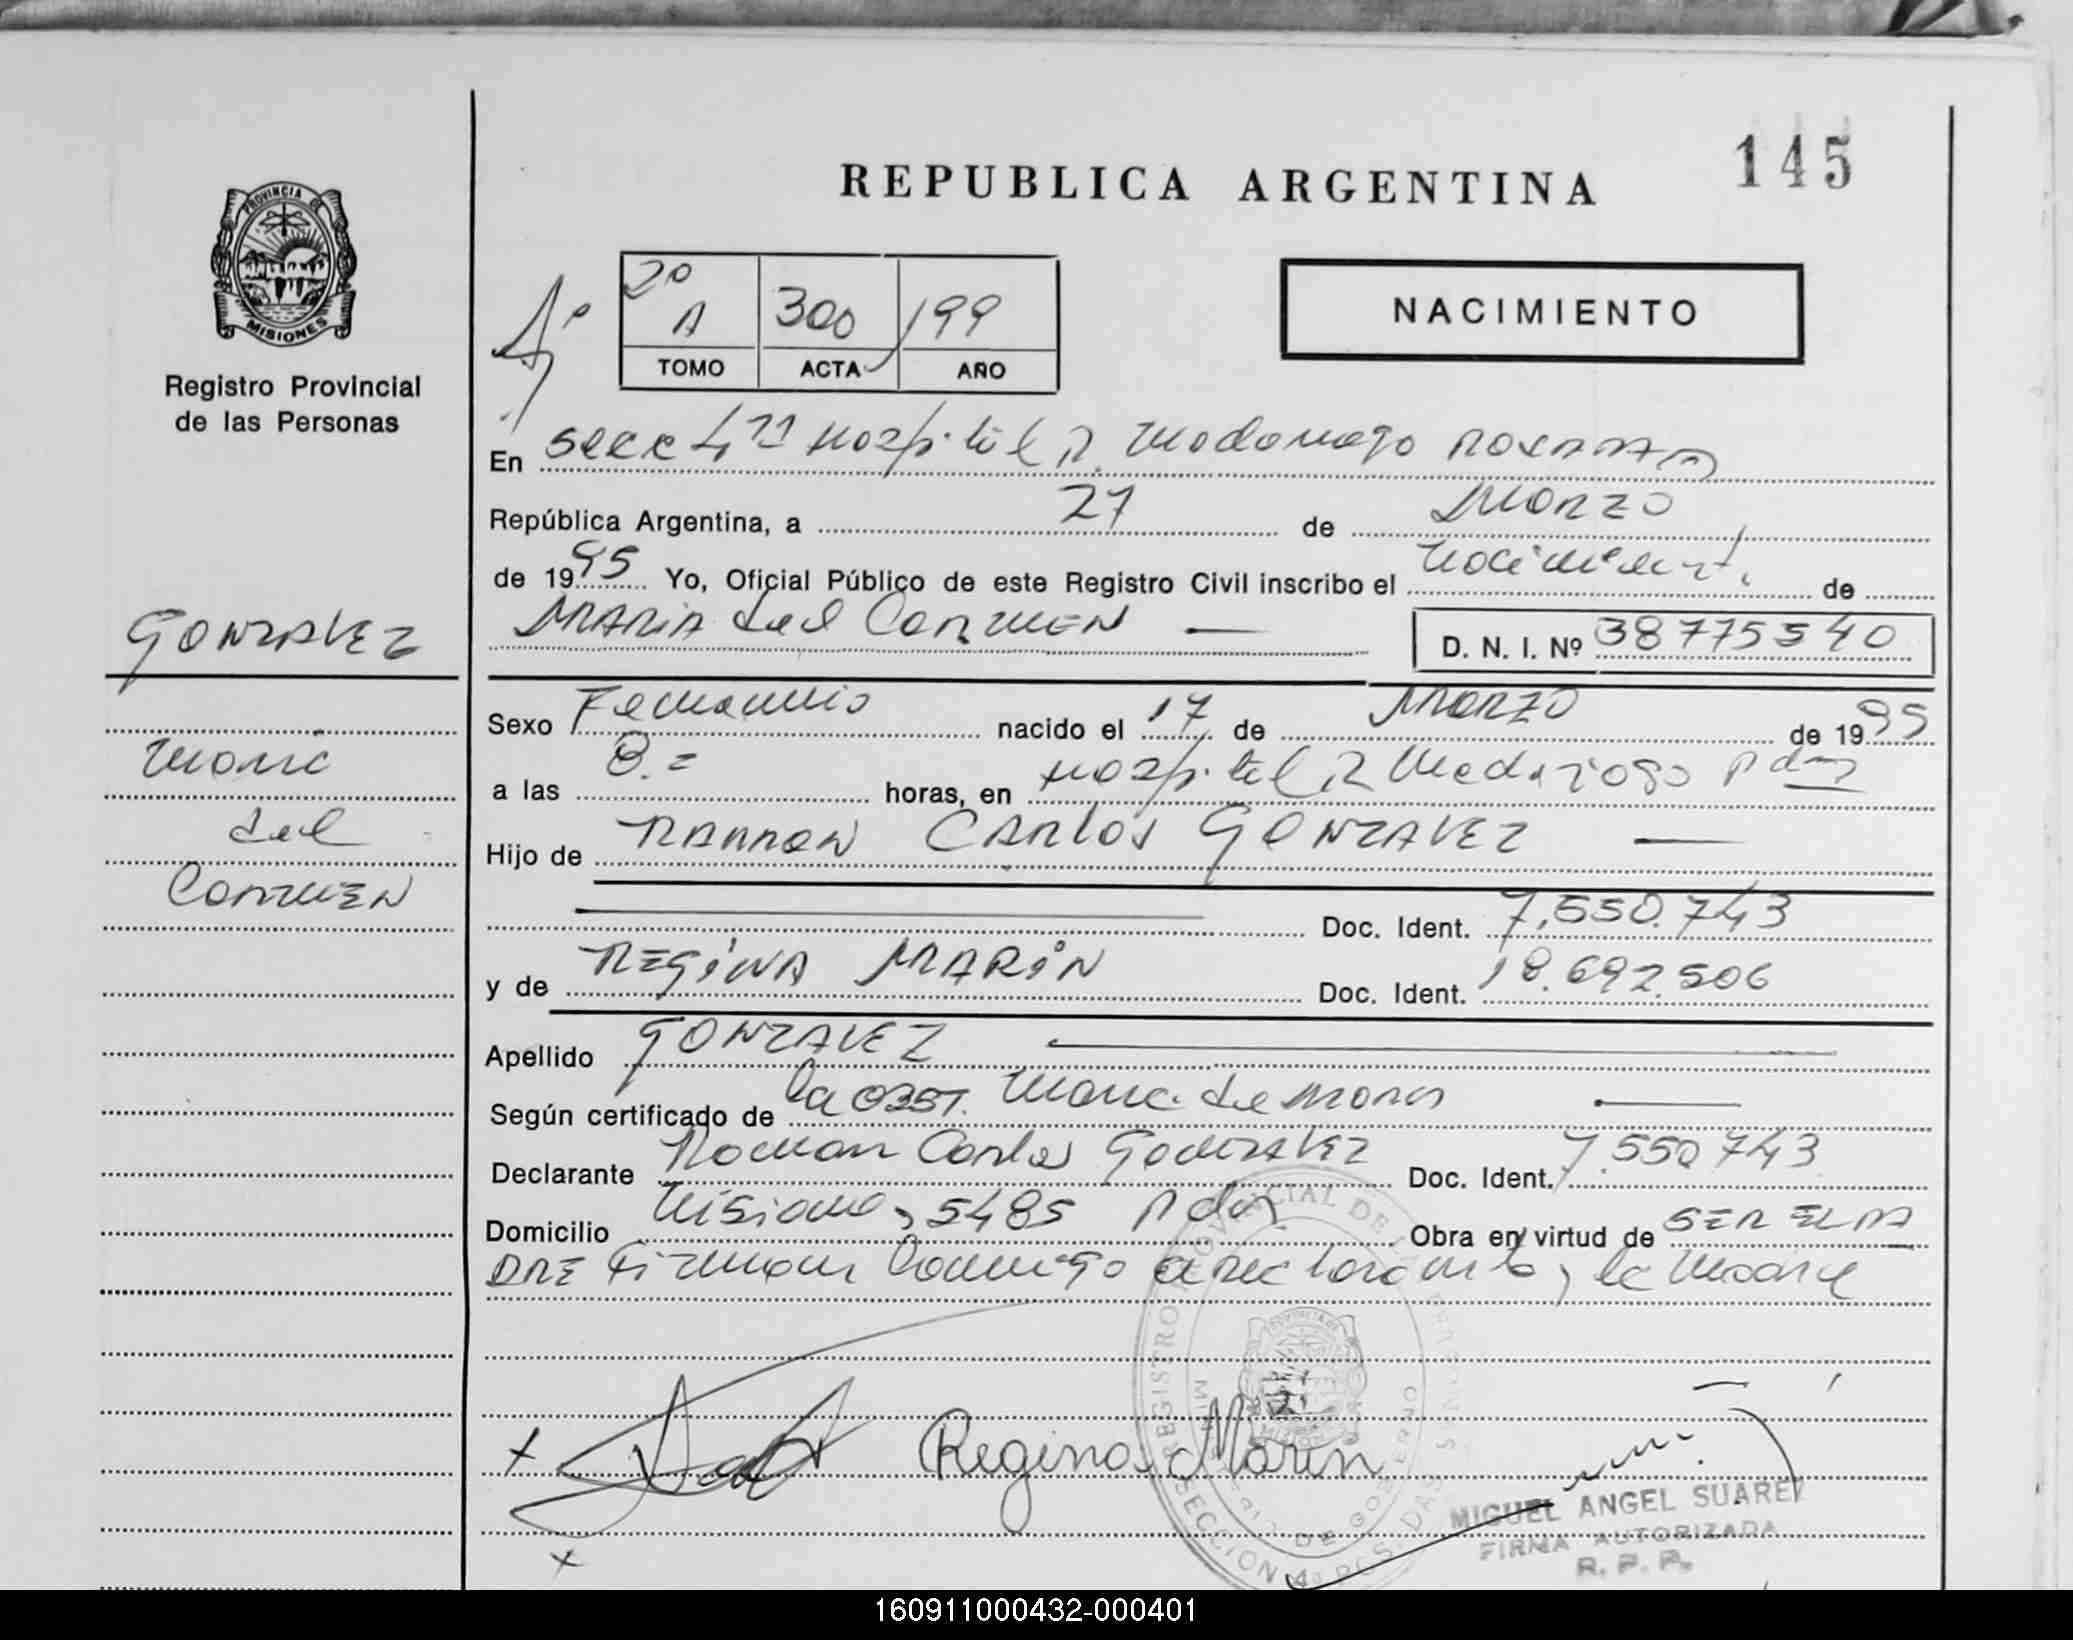 145
REPUBLICA ARGENTINA
PROVINCIA DE MISIONES
Registro Provincial
de las Personas
2º A 300 199
TOMO ACTA AÑO
NACIMIENTO
En Secc 4ta Hospital R. Madariaga POSADAS
República Argentina, a 27 de Marzo
de 1995 Yo, Oficial Público de este Registro Civil inscribo el nacimiento de
MARIA del CARMEN
D. N. I. Nº 38775540
GONZALEZ
Maria
del
Carmen
Sexo Femenino nacido el 17 de Marzo de 1995
a las 8.= horas, en Hospital R Madariaga Pdas
Hijo de RAMON CARLOS GONZALEZ
Doc. Ident. 7.550.743
y de REGINA MARIN Doc. Ident. 18.692.506
Apellido GONZALEZ
Según certificado de la OBST. Maria de
Declarante Ramon Carlos Gonzalez Doc. Ident. 7.550743
Domicilio Misiones 5485 Pdas Obra en virtud de SER EL PA
DRE Firman conmigo el declarante y la madre
Regina Marin
REGISTRO PROVINCIAL DE LAS PERSONAS
SECCION 4ta PCS. DAS
MIGUEL ANGEL SUAREZ
FIRMA AUTORIZADA
R. P. P.
160911000432-000401